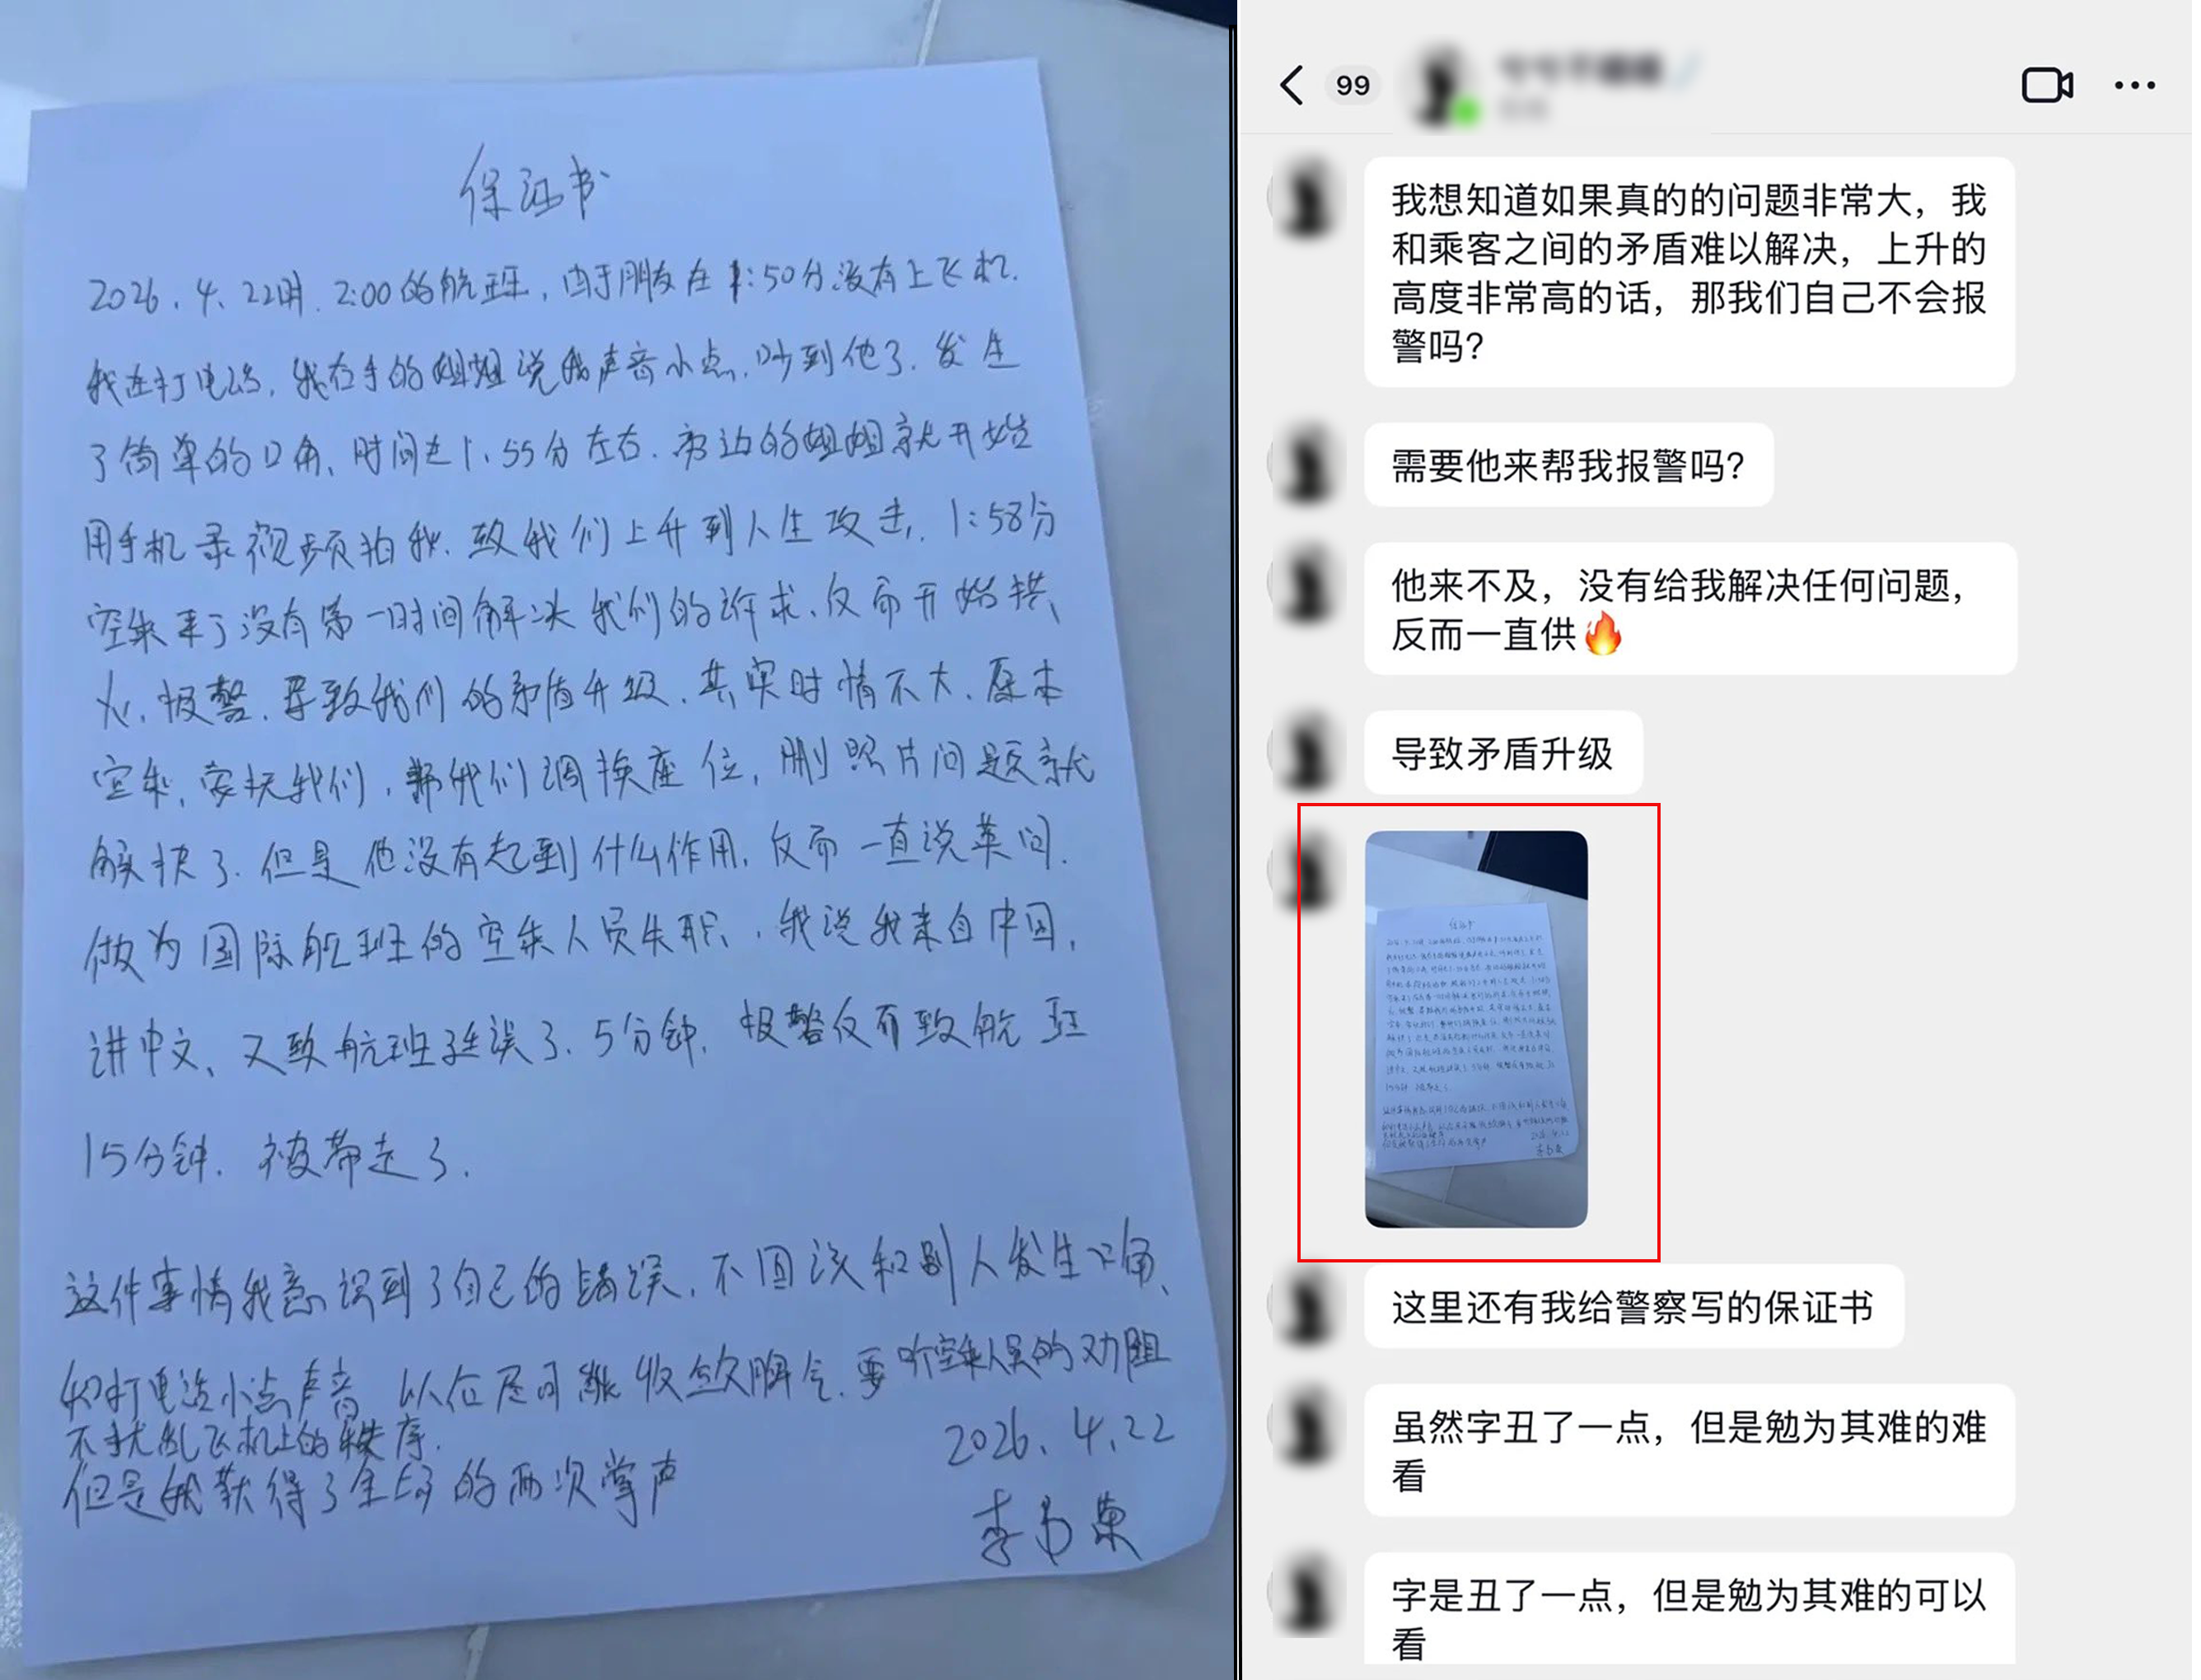 保证书
2026.4.22时.2:00的航班,由于朋友在1:50分没有上飞机.
我在打电话,我右手的姐姐说我声音小点,吵到他了.发生
了简单的口角、时间在1.55分左右.旁边的姐姐就开始
用手机录视频拍我.致我们上升到人生攻击,1:58分
空乘来了没有第一时间解决我们的诉求、反而开始拱
火,报警.导致我们的矛盾升级.其实时情不大.原本
空乘,安抚我们,帮我们调换座位,删照片问题就
解决了.但是他没有起到什么作用,反而一直说英问.
做为国际航班的空乘人员失职,我说我来自中国,
讲中文、又致航班延误了.5分钟,报警反而致航班
15分钟.被带走了.
这件事情我意识到了自己的错误,不因该和别人发生口角、
和打电话小点声音 以位尽可能收敛脾气.要听空乘人员的劝阻
不扰乱飞机上的秩序.
但是我获得了全场的两次掌声
2026.4.22
99
我想知道如果真的的问题非常大，我
和乘客之间的矛盾难以解决，上升的
高度非常高的话，那我们自己不会报
警吗？
需要他来帮我报警吗？
他来不及，没有给我解决任何问题，
反而一直供🔥
导致矛盾升级
这里还有我给警察写的保证书
虽然字丑了一点，但是勉为其难的难
看
字是丑了一点，但是勉为其难的可以
看